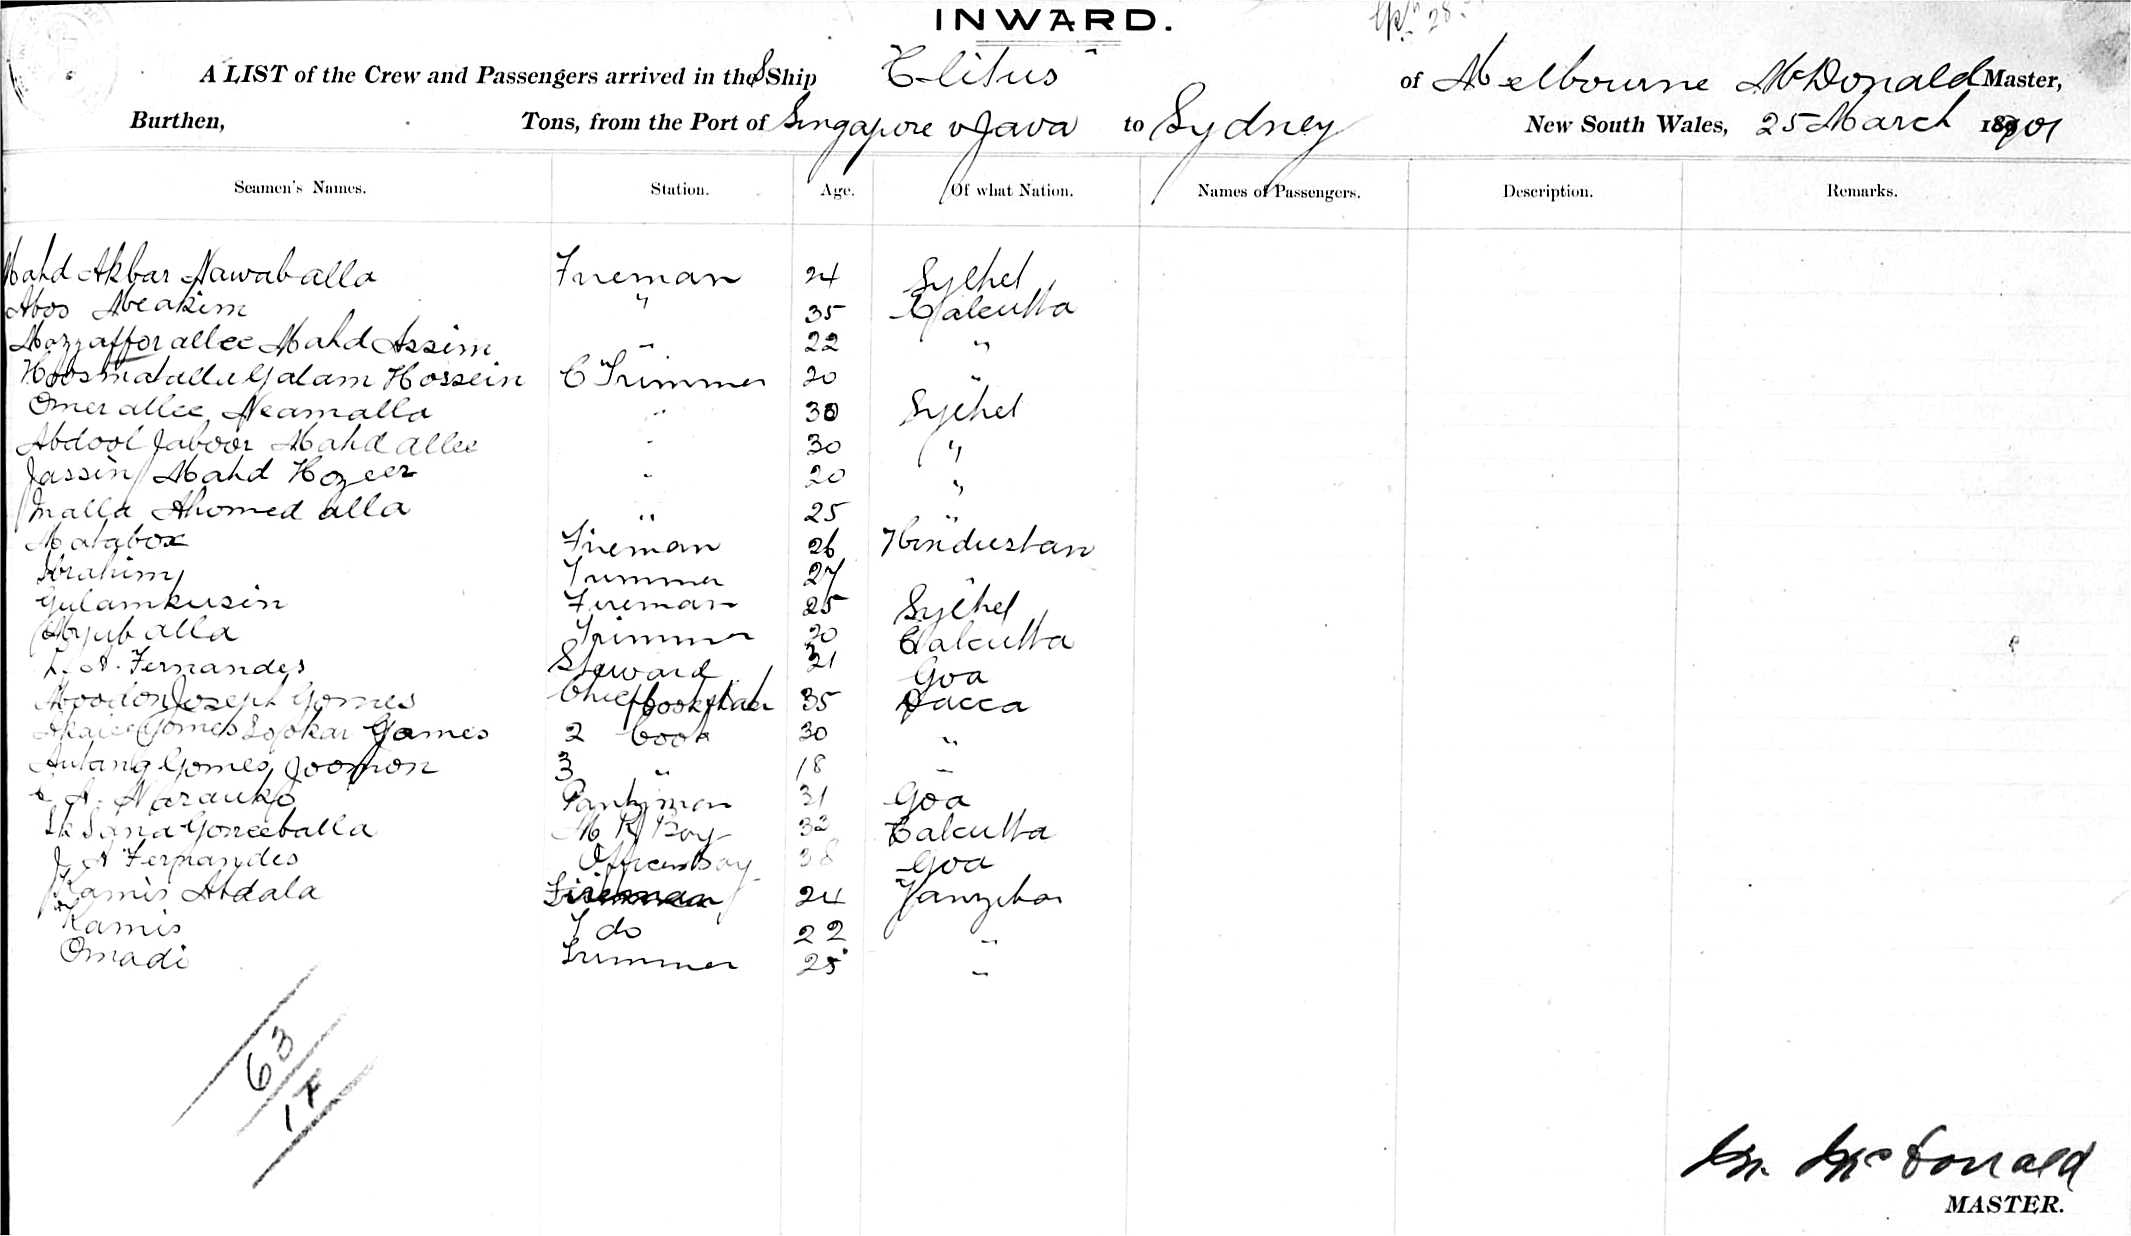 INWARD.
A LIST of the Crew and Passengers arrived in the S Ship Clitus of Melbourne McDonald Master,
Burthen, Tons, from the Port of Singapore v Java to Sydney New South Wales, 25 March 1901
Seamen's Names. Station. Age. Of what Nation. Names of Passengers. Description. Remarks.
Mahd Akbar Nawaballa Fireman 24 Sylhet
Abos Meakim " 35 Calcutta
Mozzafforallee Mahd Assim " 22 "
Hoosmatulla Golam Hossein C Trimmer 20 "
Omer allee Neamalla " 30 Sylhet
Abdool Jaboor Mahd allee " 30 "
Jassin Mahd Hozeer " 20 "
Inalla Ahomed alla " 25 "
Matabox Fireman 26 Hindustan
Ibrahim Trimmer 27 "
Gulamhusin Fireman 25 Sylhet
Abjub alla Trimmer 20 Calcutta
L. A. Fernandes Steward 31 Goa
Joseph Gomes Chief Cook 35 Dacca
Gomes Sopkar Gomes 2 Cook 30 "
Antang Gomes Joomon 3 " 18 "
A. Nazauko Pantryman 31 Goa
Sk Sona Goneeballa M R Boy 32 Calcutta
J A Fernandes Officers Boy 38 Goa
Kamis Abdala Fireman 24 Zanzibar
Kamis do 22 "
Omadi Trimmer 25 "
63
17
McDonald
MASTER.